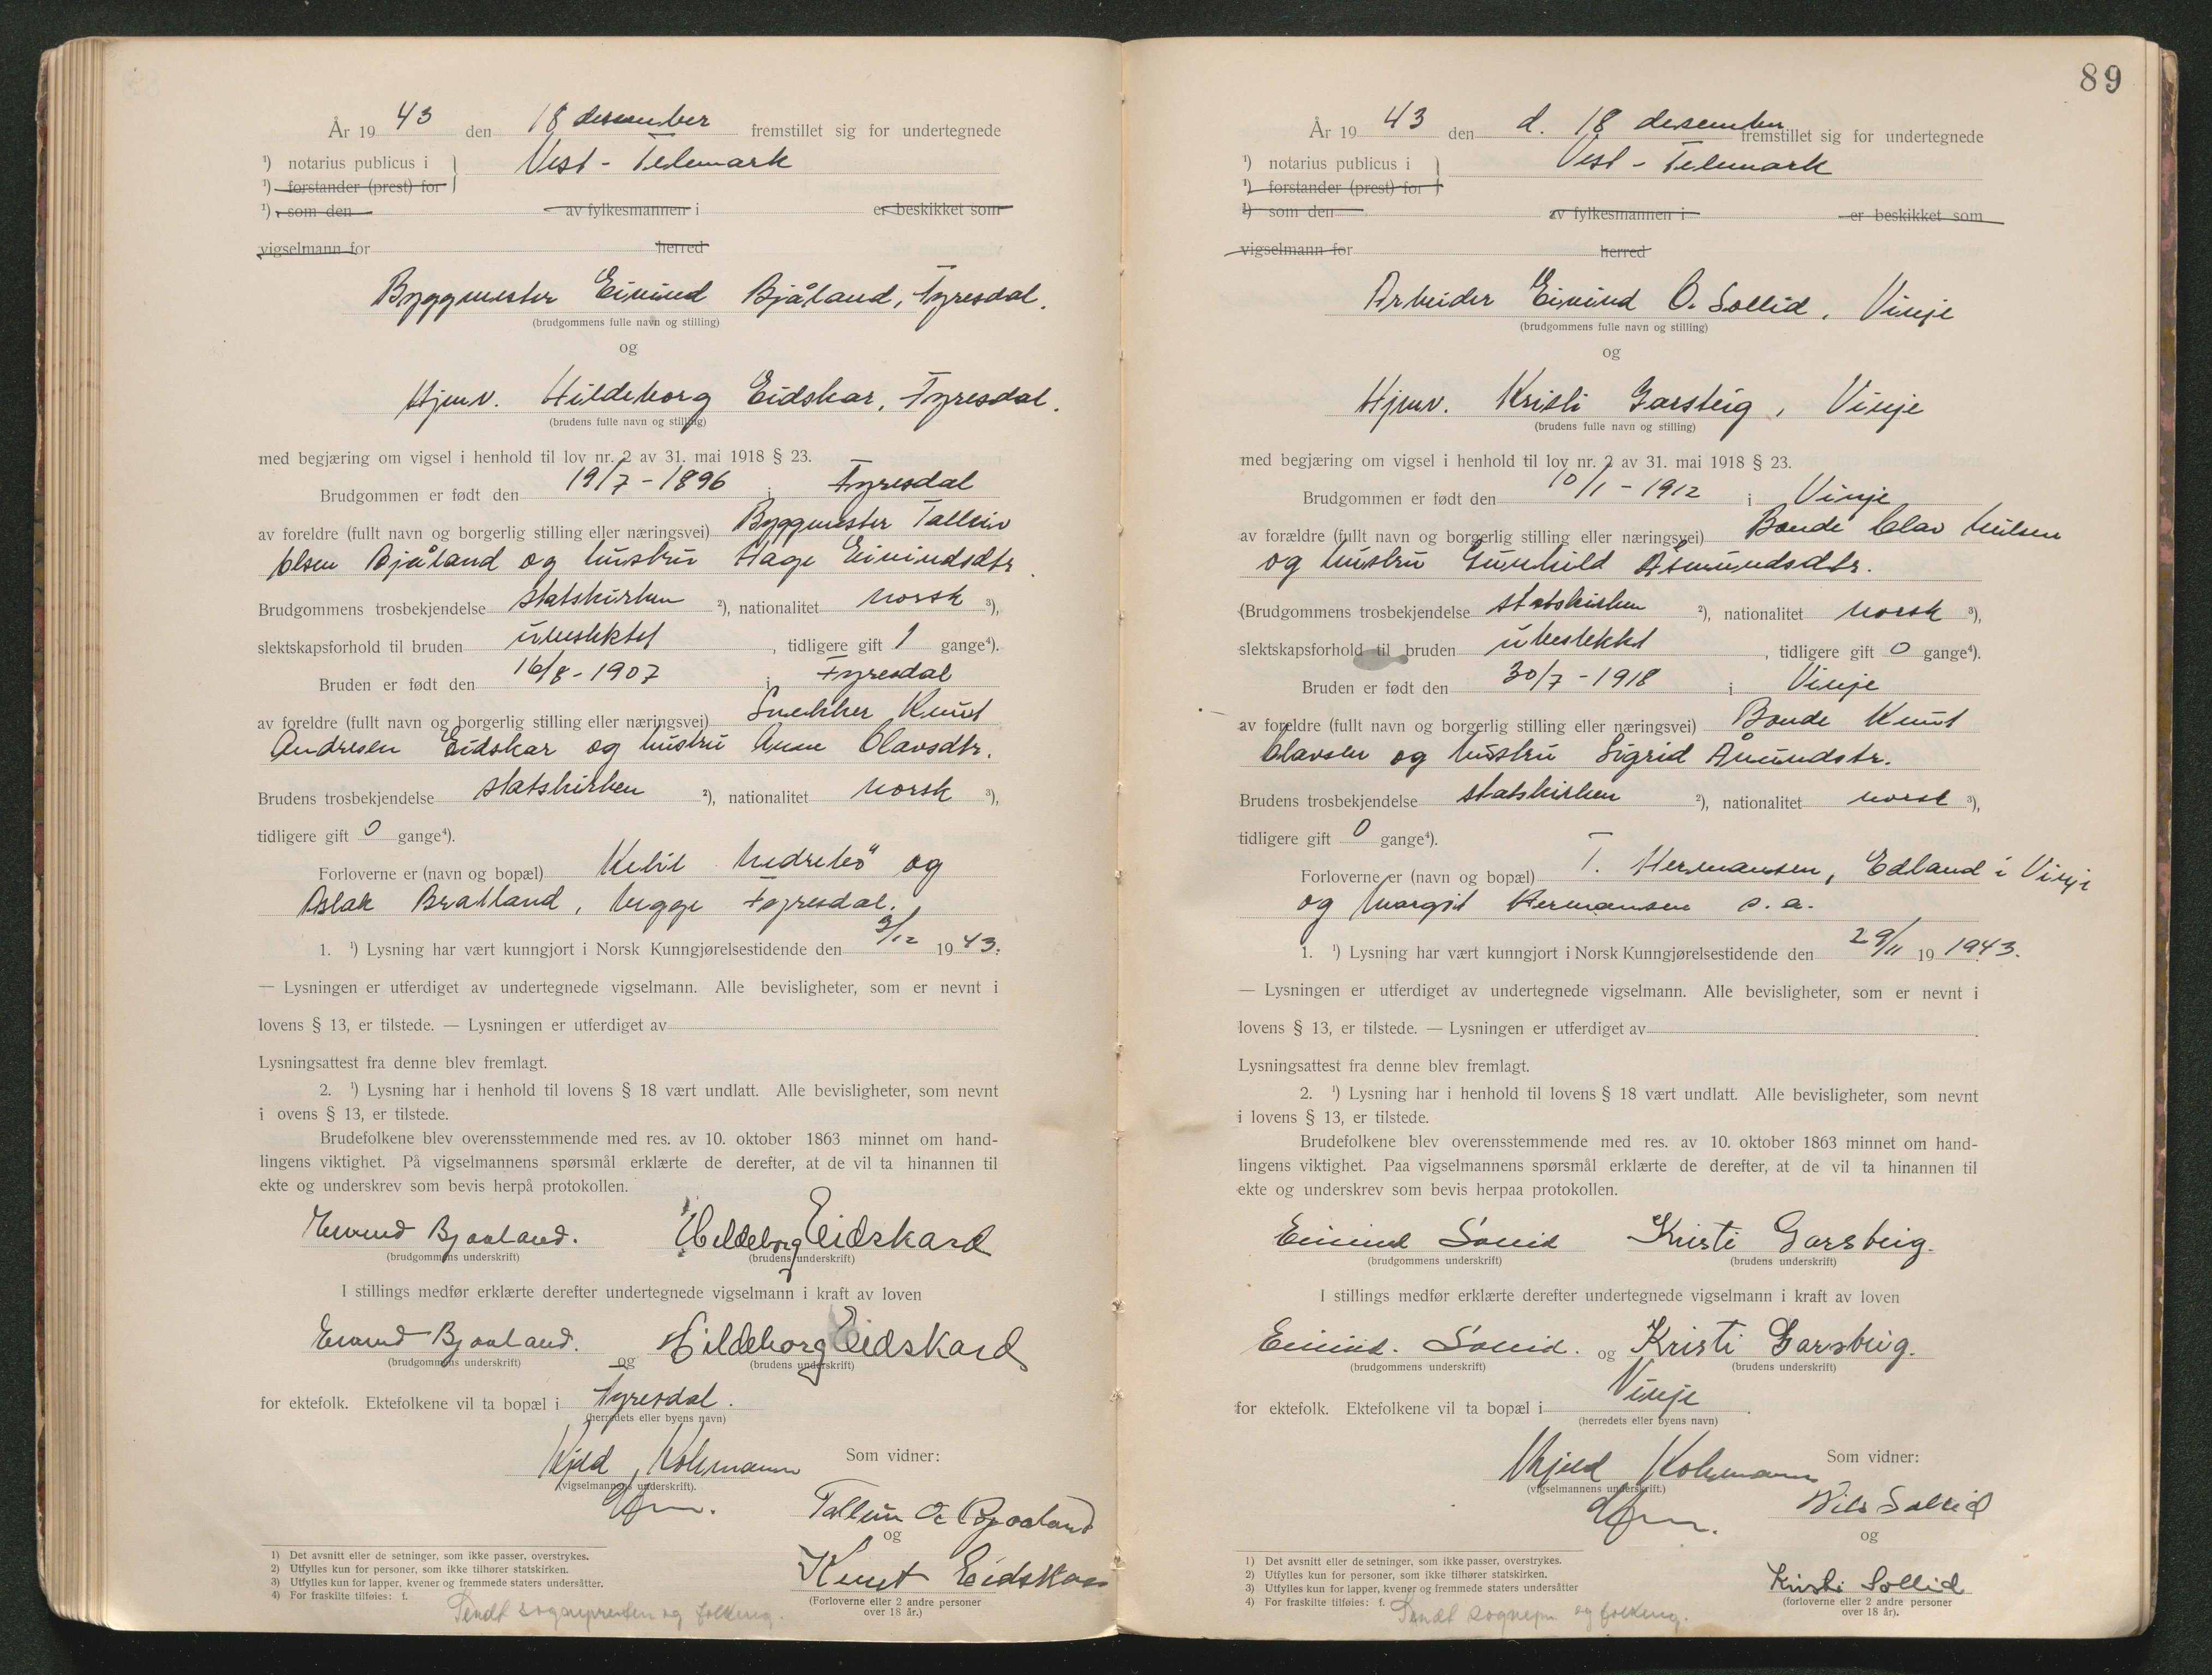 År 19 43 den 18 desember fremstillet sig for undertegnede
¹) notarius publicus i } Vest-Telemark
¹) forstander (prest) for
¹) som den av fylkesmannen i er beskikket som
vigselmann for herred
Byggmester Eivind Bjåland, Fyresdal.
(brudgommens fulle navn og stilling)
og
Hjmv. Hildeborg Eidskar, Fyresdal.
(brudens fulle navn og stilling)
med begjæring om vigsel i henhold til lov nr. 2 av 31. mai 1918 § 23.
Brudgommen er født den 19/7-1896 i Fyresdal
av foreldre (fullt navn og borgerlig stilling eller næringsvei) Byggmester Talleiv
Olsen Bjåland og hustru Hage Eivindsdtr.
Brudgommens trosbekjendelse statskirken ²), nationalitet norsk ³),
slektskapsforhold til bruden ubeslektet, tidligere gift 1 gange⁴).
Bruden er født den 16/8-1907 i Fyresdal
av foreldre (fullt navn og borgerlig stilling eller næringsvei) Snekker Knut
Andresen Eidskar og hustru Anne Olavsdtr.
Brudens trosbekjendelse statskirken ²), nationalitet norsk ³),
tidligere gift 0 gange⁴).
Forloverne er (navn og bopæl) Ketil Nedrebö og
Aslak Bratland, begge Fyresdal.
1. ¹) Lysning har vært kunngjort i Norsk Kunngjørelsestidende den 3/12 19 43.
— Lysningen er utferdiget av undertegnede vigselmann. Alle bevisligheter, som er nevnt i
lovens § 13, er tilstede. — Lysningen er utferdiget av
Lysningsattest fra denne blev fremlagt.
2. ¹) Lysning har i henhold til lovens § 18 vært undlatt. Alle bevisligheter, som nevnt
i ovens § 13, er tilstede.
Brudefolkene blev overensstemmende med res. av 10. oktober 1863 minnet om hand-
lingens viktighet. På vigselmannens spørsmål erklærte de derefter, at de vil ta hinannen til
ekte og underskrev som bevis herpå protokollen.
Eivind Bjaaland. Hildeborg Eidskard
(brudgommens underskrift) (brudens underskrift)
I stillings medfør erklærte derefter undertegnede vigselmann i kraft av loven
Eivind Bjaaland. og Hildeborg Eidskard
(brudgommens underskrift) (brudens underskrift)
for ektefolk. Ektefolkene vil ta bopæl i Fyresdal.
(herredets eller byens navn)
Kjeld Kohmann Som vidner:
(vigselmannens underskrift).
Talleiv O Bjaaland
og
Knut Eidskar
(Forloverne eller 2 andre personer
over 18 år.)
1) Det avsnitt eller de setninger, som ikke passer, overstrykes.
2) Utfylles kun for personer, som ikke tilhører statskirken.
3) Utfylles kun for lapper, kvener og fremmede staters undersåtter.
4) For fraskilte tilføies: f.
Sendt sognepresten og folkereg.
89
År 19 43 den d. 18 desember fremstillet sig for undertegnede
¹) notarius publicus i } Vest-Telemark
¹) forstander (prest) for
¹) som den av fylkesmannen i er beskikket som
vigselmann for herred
Arbeider Eivind O. Sollid, Vinje
(brudgommens fulle navn og stilling)
og
Hjmv. Kristi Garsteig, Vinje
(brudens fulle navn og stilling)
med begjæring om vigsel i henhold til lov nr. 2 av 31. mai 1918 § 23.
Brudgommen er født den 10/1-1912 i Vinje
av forældre (fullt navn og borgerlig stilling eller næringsvei) Bonde Olav Nilsen
og hustru Gunhild Åsmundsdtr.
(Brudgommens trosbekjendelse statskirken ²), nationalitet norsk ³),
slektskapsforhold til bruden ubeslektet, tidligere gift 0 gange⁴).
Bruden er født den 30/7-1918 i Vinje
av foreldre (fullt navn og borgerlig stilling eller næringsvei) Bonde Knut
Olavsen og hustru Sigrid Ånundstr.
Brudens trosbekjendelse statskirken ²), nationalitet norsk ³),
tidligere gift 0 gange⁴).
Forloverne er (navn og bopæl) T. Hermansen, Edland i Vinje
og Margit Hermansen s.a.
1. ¹) Lysning har vært kunngjort i Norsk Kunngjørelsestidende den 29/11 19 1943.
— Lysningen er utferdiget av undertegnede vigselmann. Alle bevisligheter, som er nevnt i
lovens § 13, er tilstede. — Lysningen er utferdiget av
Lysningsattest fra denne blev fremlagt.
2. ¹) Lysning har i henhold til lovens § 18 vært undlatt. Alle bevisligheter, som nevnt
i lovens § 13, er tilstede.
Brudefolkene blev overensstemmende med res. av 10. oktober 1863 minnet om hand-
lingens viktighet. Paa vigselmannens spørsmål erklærte de derefter, at de vil ta hinannen til
ekte og underskrev som bevis herpaa protokollen.
Eivind Sollid Kristi Garsteig.
(brudgommens underskrift) (brudens underskrift)
I stillings medfør erklærte derefter undertegnede vigselmann i kraft av loven
Eivind. Sollid. og Kristi Garsteig.
(brudgommens underskrift) (brudens underskrift)
for ektefolk. Ektefolkene vil ta bopæl i Vinje.
(herredets eller byens navn)
Kjeld Kohmann Som vidner:
(vigselmannens underskrift.)
Nils Sollid
og
Kristi Sollid
(forloverne eller 2 andre personer
over 18 år).
1) Det avsnitt eller de setninger, som ikke passer, overstrykes.
2) Utfylles kun for personer, som ikke tilhører statskirken.
3) Utfylles kun for lapper, kvener og fremmede staters undersåtter
4) For fraskilte tilføies: f.
Sendt sognepr. og folkereg.